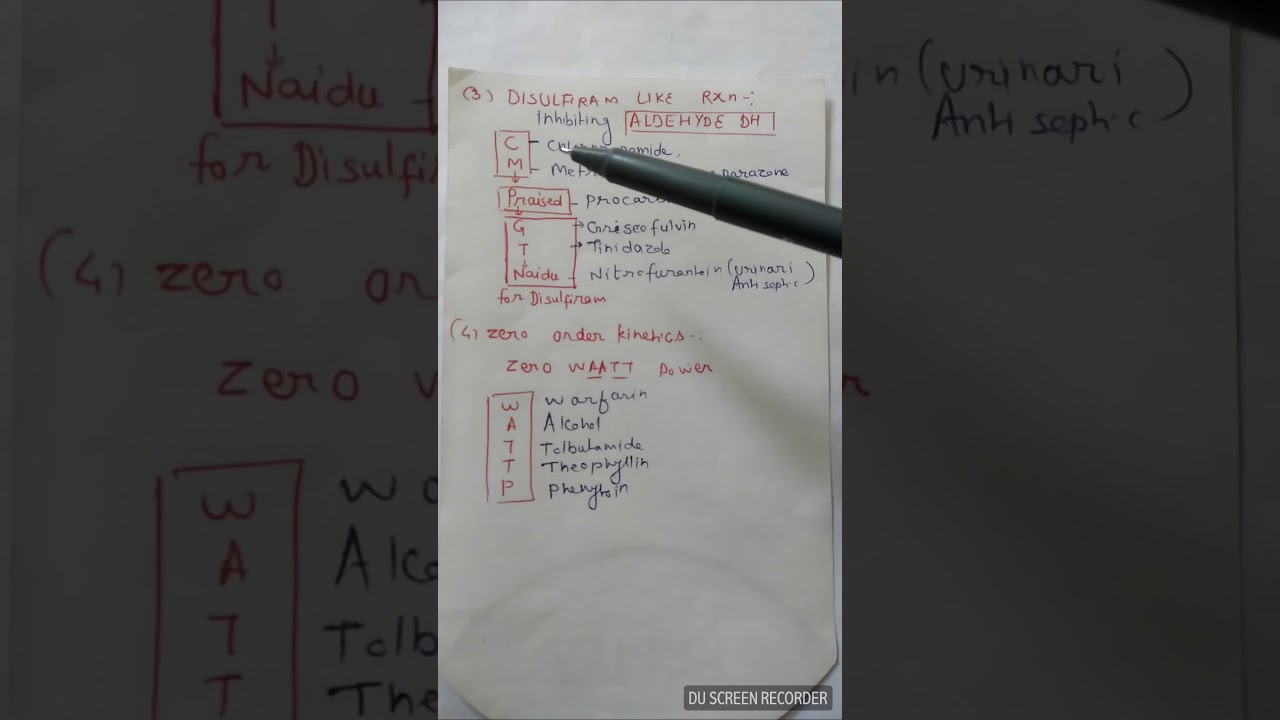 (3) DISULFIRAM LIKE Rxn-:
Inhibiting ALDEHYDE DH
C -
M -
Praised -
G → Griseofulvin
T → Tinidazole
Naidu - Nitrofurantoin (urinari
Antiseptic)
for Disulfiram
(4) zero order kinetics-:
Zero WAATT power
W Warfarin
A Alcohol
T Tolbutamide
T Theophyllin
P Phenytoin
DU SCREEN RECORDER